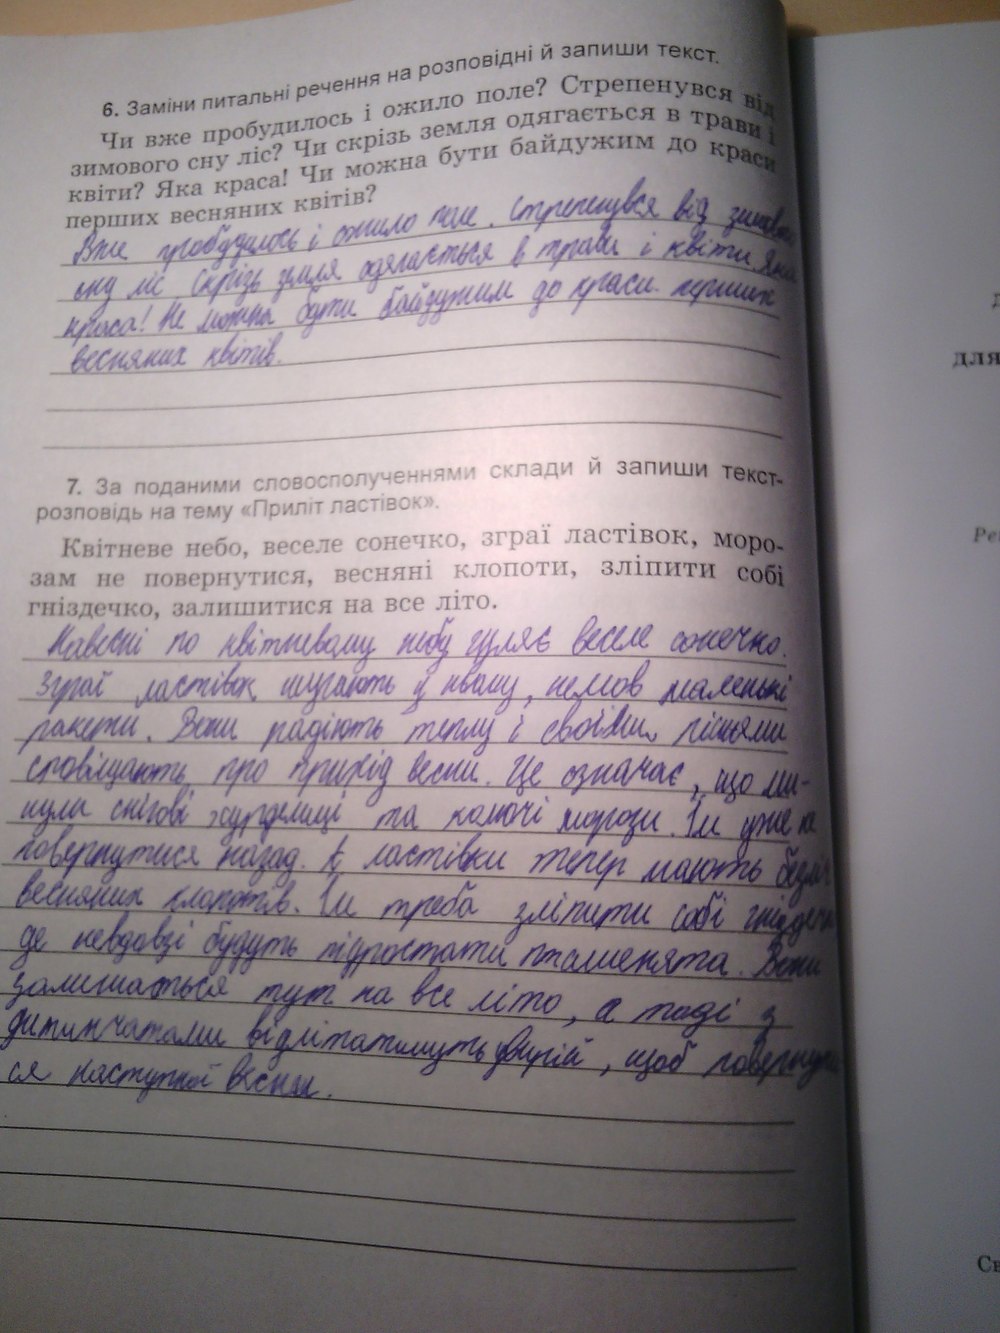 6. Заміни питальні речення на розповідні й запиши текст.
Чи вже пробудилось і ожило поле? Стрепенувся від
зимового сну ліс? Чи скрізь земля одягається в трави і
квіти? Яка краса! Чи можна бути байдужим до краси
перших весняних квітів?
Вже пробудилось і ожило поле. Стрепенувся від зимового
сну ліс Скрізь земля одягається в трави і квіти. Яка
краса! Не можна бути байдужим до краси перших
весняних квітів.
7. За поданими словосполученнями склади й запиши текст-
розповідь на тему «Приліт ластівок».
Квітневе небо, веселе сонечко, зграї ластівок, моро-
зам не повернутися, весняні клопоти, зліпити собі
гніздечко, залишитися на все літо.
Навесні по квітневому небу гуляє веселе сонечко.
Зграї ластівок шугають у ньому, немов маленькі
ракети. Вони радіють теплу і своїми піснями
сповіщають про прихід весни. Це означає, що ми-
нули снігові хурделиці та колючі морози. Їм уже не
повернутися назад. А ластівки тепер мають безліч
весняних клопотів. Їм треба зліпити собі гніздечко
де невдовзі будуть підростати пташенята. Вони
залишаться тут на все літо, а тоді з
дитинчатами відлітатимуть у вирій, щоб повернути
ся наступної весни.
для
Ре
Сн